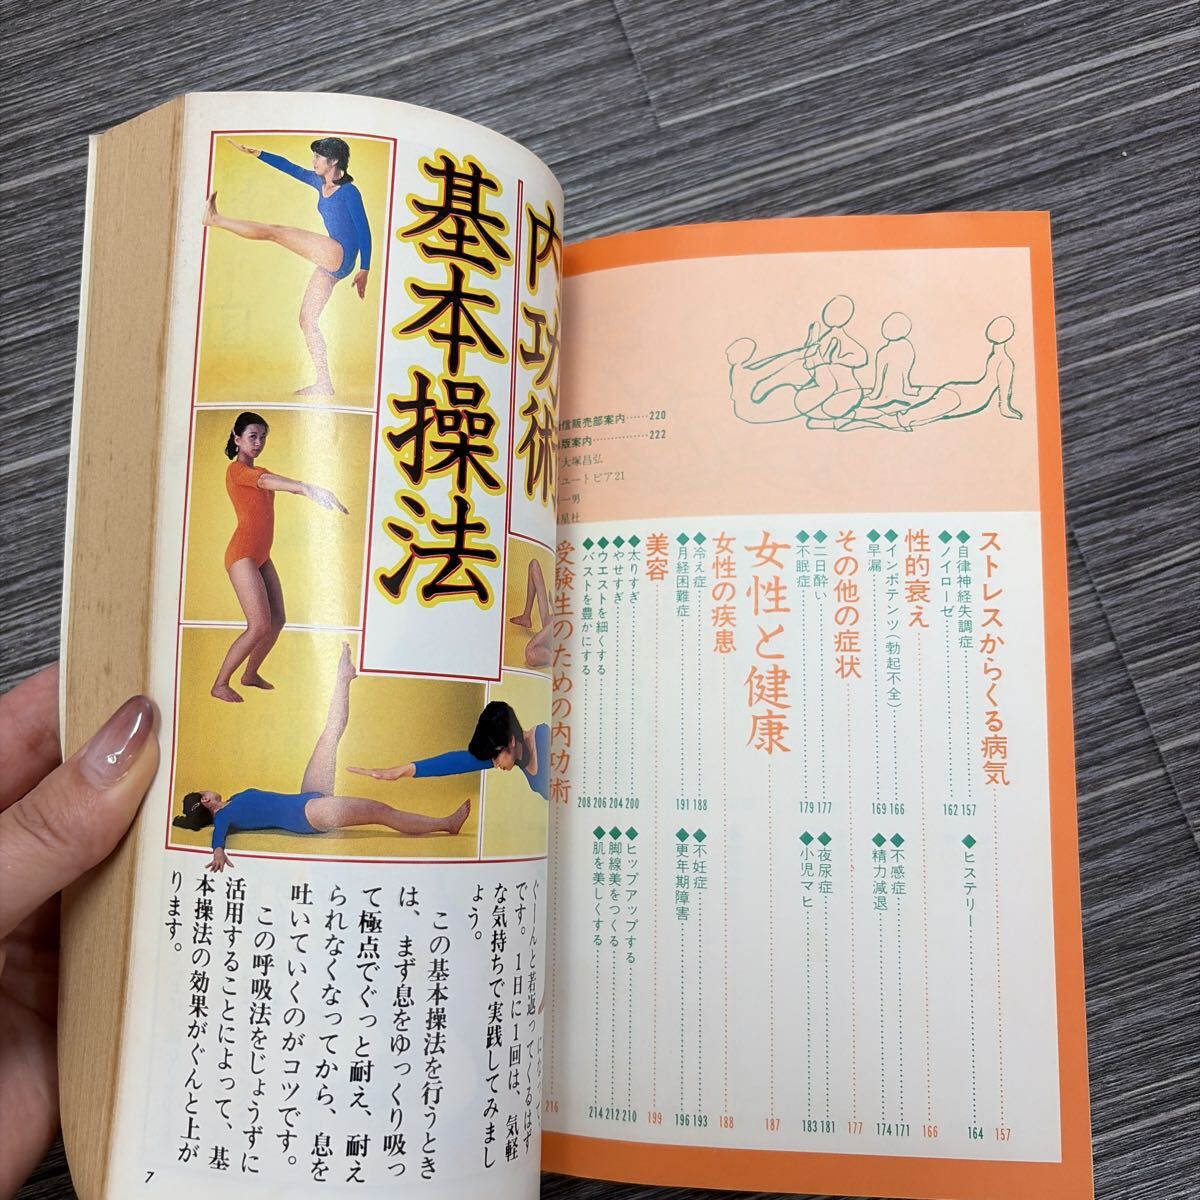 内功術
基本操法
ぐーんと若返ってくるはず
です。1日に1回は、気軽
な気持ちで実践してみまし
ょう。
この基本操法を行うとき
は、まず息をゆっくり吸っ
て極点でぐっと耐え、耐え
られなくなってから、息を
吐いていくのがコツです。
この呼吸法をじょうずに
活用することによって、基
本操法の効果がぐんと上が
ります。
7
信販売部案内……220
版案内……………222
大塚昌弘
ユートピア21
一男
星社
ストレスからくる病気……157
◆自律神経失調症……157
◆ノイローゼ……162
◆ヒステリー……164
性的衰え……166
◆インポテンツ(勃起不全)……166
◆早漏……169
◆不感症……171
◆精力減退……174
その他の症状……177
◆二日酔い……177
◆不眠症……179
◆夜尿症……181
◆小児マヒ……183
女性と健康……187
女性の疾患……188
◆冷え症……188
◆月経困難症……191
◆不妊症……193
◆更年期障害……196
美容……199
◆太りすぎ……200
◆やせすぎ……204
◆ウエストを細くする……206
◆バストを豊かにする……208
◆ヒップアップする……210
◆脚線美をつくる……212
◆肌を美しくする……214
受験生のための内功術……216